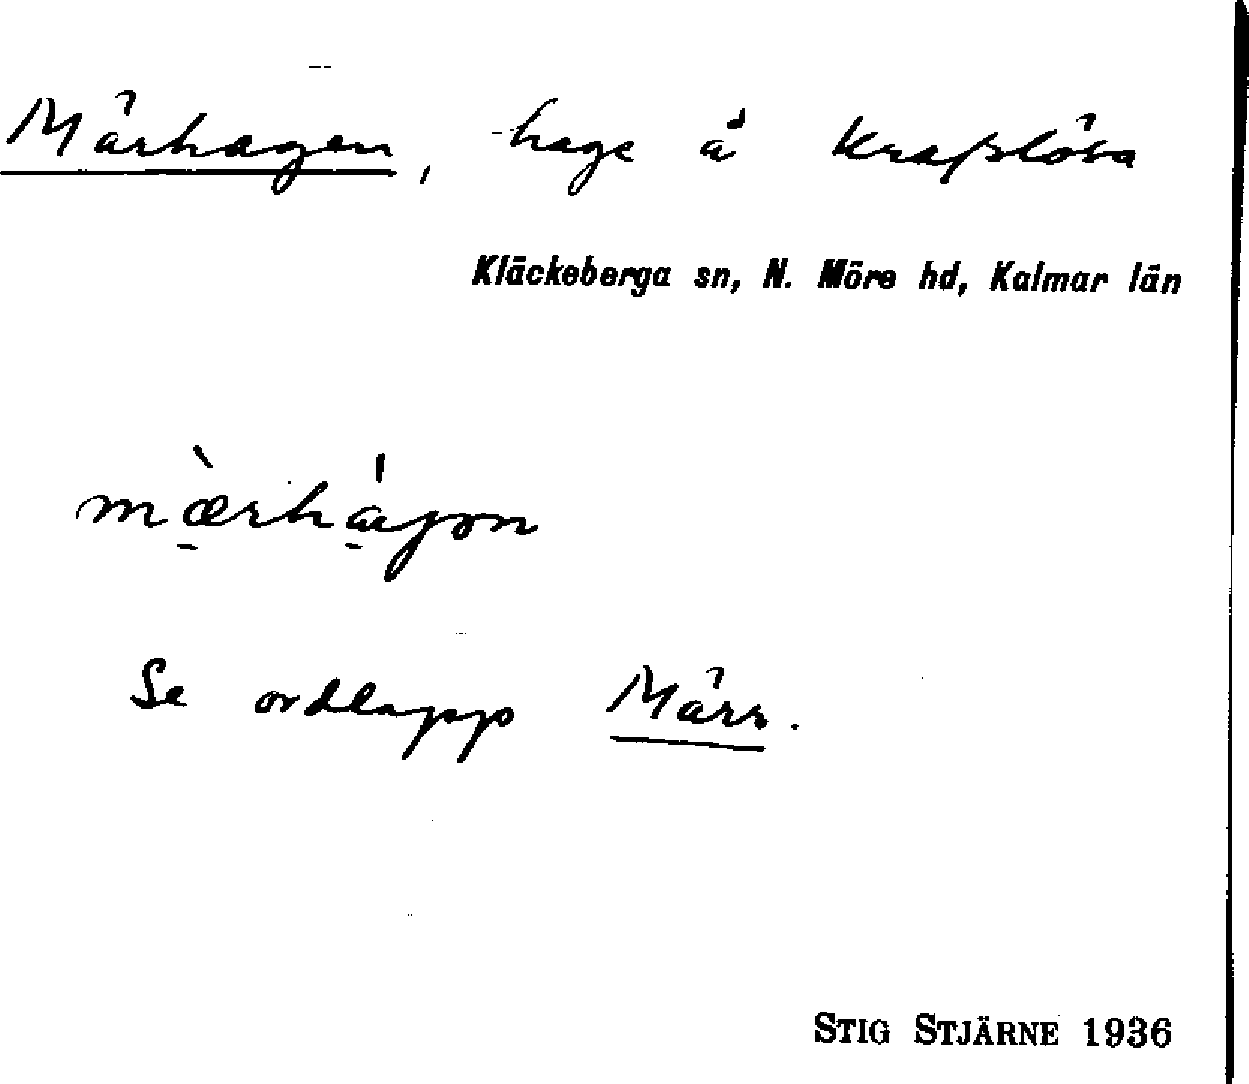 Märhagen, hage å Krafslösa
Kläckeberga sn, N. Möre hd, Kalmar län
mæ̀rhágon
Se ordlapp Märr.
STIG STJÄRNE 1936